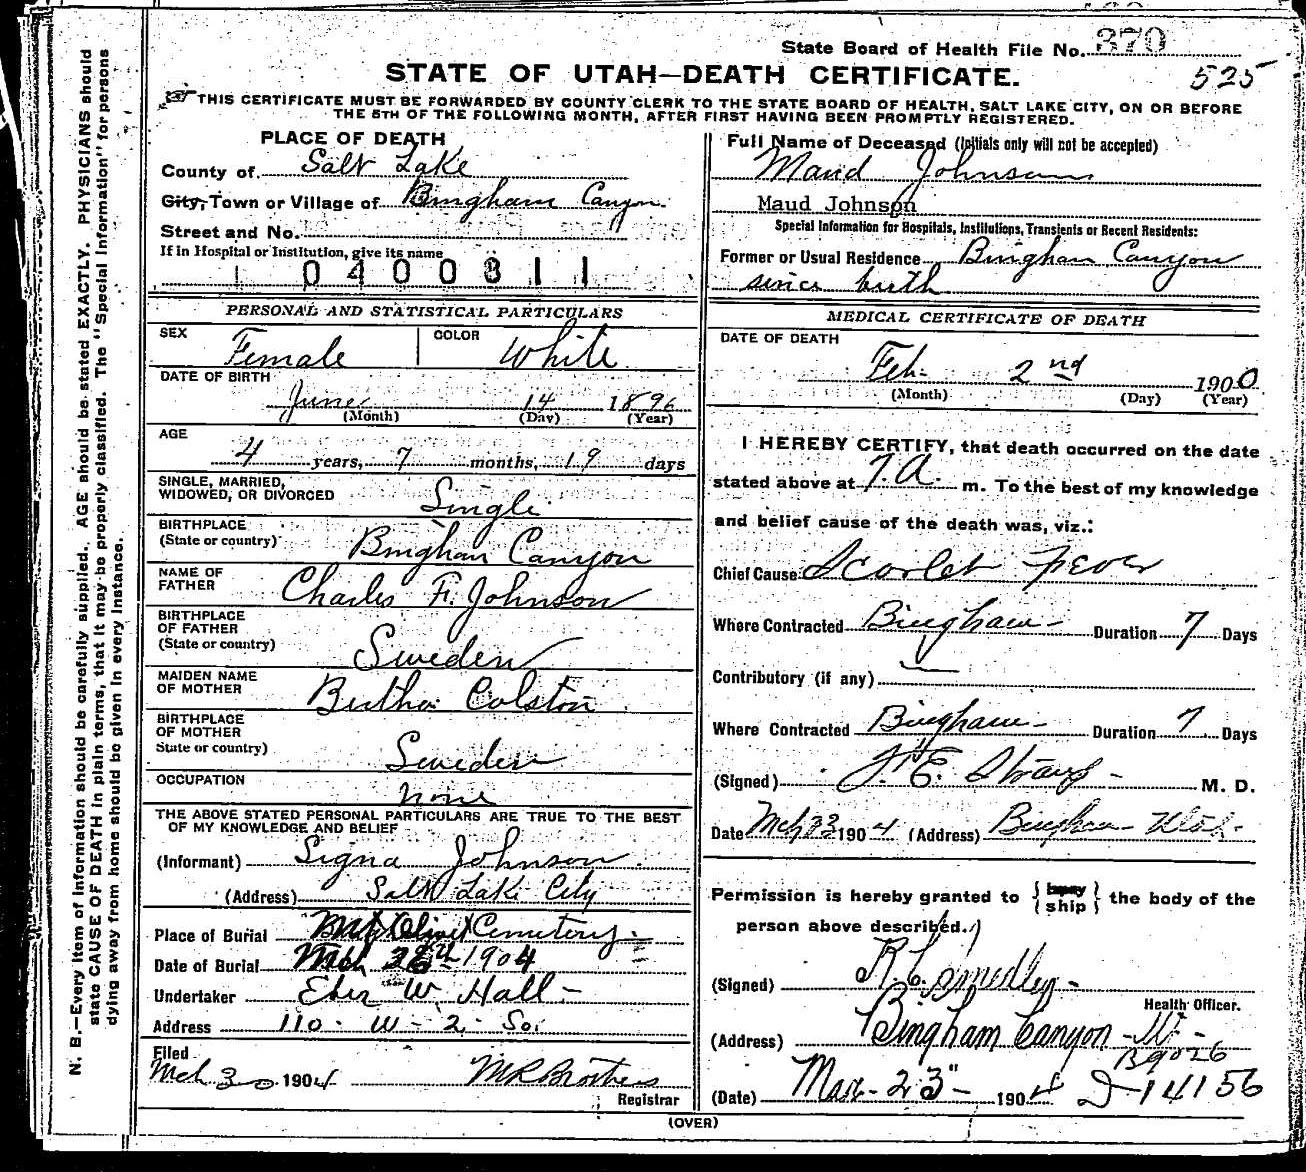 State Board of Health File No. 370
525
STATE OF UTAH—DEATH CERTIFICATE.
THIS CERTIFICATE MUST BE FORWARDED BY COUNTY CLERK TO THE STATE BOARD OF HEALTH, SALT LAKE CITY, ON OR BEFORE
THE 5TH OF THE FOLLOWING MONTH, AFTER FIRST HAVING BEEN PROMPTLY REGISTERED.
PLACE OF DEATH
County of Salt Lake
City, Town or Village of Bingham Canyon
Street and No.
If in Hospital or Institution, give its name
0400811
PERSONAL AND STATISTICAL PARTICULARS
SEX Female COLOR White
DATE OF BIRTH
June 14 1896
(Month) (Day) (Year)
AGE
4 years, 7 months, 19 days
SINGLE, MARRIED,
WIDOWED, OR DIVORCED Single
BIRTHPLACE
(State or country) Bingham Canyon
NAME OF
FATHER Charles F. Johnson
BIRTHPLACE
OF FATHER
(State or country) Sweden
MAIDEN NAME
OF MOTHER Bertha Colston
BIRTHPLACE
OF MOTHER
State or country) Sweden
OCCUPATION
none
THE ABOVE STATED PERSONAL PARTICULARS ARE TRUE TO THE BEST
OF MY KNOWLEDGE AND BELIEF
(Informant) Signa Johnson
(Address) Salt Lake City
Place of Burial Mt Olivet Cemetery
Date of Burial Mch 1904
Undertaker Eber W. Hall
Address 110 - W - 2 - So.
Filed
Mch 30 1904 M R Brothers
Registrar
Full Name of Deceased (Initials only will not be accepted)
Maud Johnson
Maud Johnson
Special Information for Hospitals, Institutions, Transients or Recent Residents:
Former or Usual Residence Bingham Canyon
since birth
MEDICAL CERTIFICATE OF DEATH
DATE OF DEATH
Feb. 2nd 1900
(Month) (Day) (Year)
I HEREBY CERTIFY, that death occurred on the date
stated above at 7.A. m. To the best of my knowledge
and belief cause of the death was, viz.:
Chief Cause Scarlet Fever
Where Contracted Bingham Duration 7 Days
Contributory (if any)
Where Contracted Bingham Duration 7 Days
(Signed) E. Straup M. D.
Date Mch 23 1904 (Address) Bingham Utah
Permission is hereby granted to { bury } the body of
{ ship }
person above described.
(Signed)
Health Officer.
(Address) Bingham Canyon Ut
B9026
(Date) Mar - 23 - 1904 D-14156
(OVER)
N. B.—Every item of information should be carefully supplied. AGE should be stated EXACTLY. PHYSICIANS should
state CAUSE OF DEATH in plain terms, that it may be properly classified. The "Special Information" for persons
dying away from home should be given in every instance.